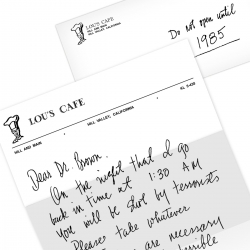 LOU'S CAFE
HILL AND MAIN
HILL VALLEY, CALIFORNIA
Do not open until
1985
LOU'S CAFE
HILL AND MAIN
HILL VALLEY, CALIFORNIA
KL 5-4
Dear Dr. Brown,
On the night that I go
back in time at 1:30 AM
You will be shot by terrorists
Please take whatever
are necessary